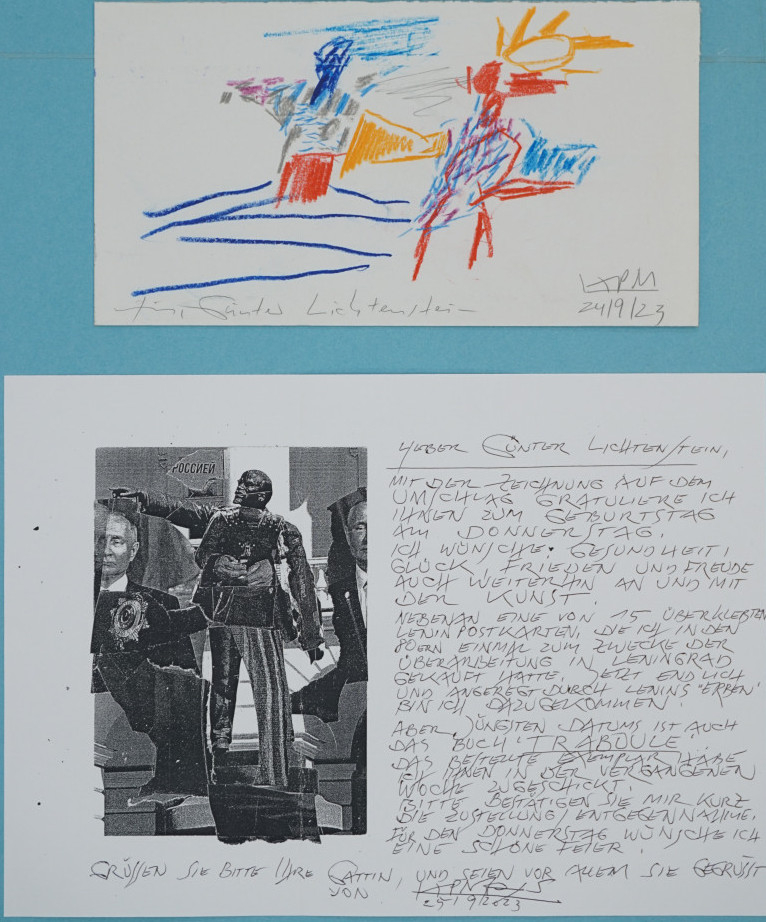 für Günter Lichtenstein
24/9/23
РОССИЕЙ
LIEBER GÜNTER LICHTENSTEIN,
MIT DER ZEICHNUNG AUF DEM
UMSCHLAG GRATULIERE ICH
IHNEN ZUM GEBURTSTAG
AM DONNERSTAG.
ICH WÜNSCHE GESUNDHEIT,
GLÜCK, FRIEDEN UND FREUDE
AUCH WEITERHIN AN UND MIT
DER KUNST.
NEBENAN EINE VON 15 ÜBERKLEBTEN
LENIN POSTKARTEN, DIE ICH IN DEN
80ERN EINMAL ZUM ZWECKE DER
ÜBERARBEITUNG IN LENINGRAD
GEKAUFT HATTE. JETZT ENDLICH
UND ANGEREGT DURCH LENINS "ERBEN"
BIN ICH DAZUGEKOMMEN.
ABER JÜNGSTEN DATUMS IST AUCH
DAS BUCH "TRABOULE".
DAS BESTELLTE EXEMPLAR HABE
ICH IHNEN IN DER VERGANGENEN
WOCHE ZUGESCHICKT.
BITTE BESTÄTIGEN SIE MIR KURZ
DIE ZUSTELLUNG/ENTGEGENNAHME.
FÜR DEN DONNERSTAG WÜNSCHE ICH
EINE SCHÖNE FEIER.
GRÜSSEN SIE BITTE IHRE GATTIN, UND SEIEN VOR ALLEM SIE GEGRÜSST
VON
25/9/2023